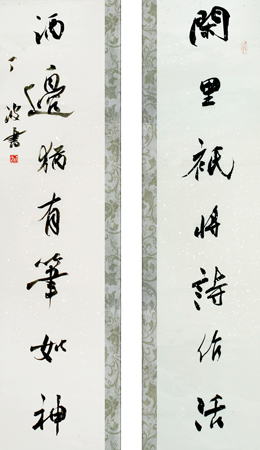 閑里祇將詩作活
酒邊猶有筆如神
丁波書